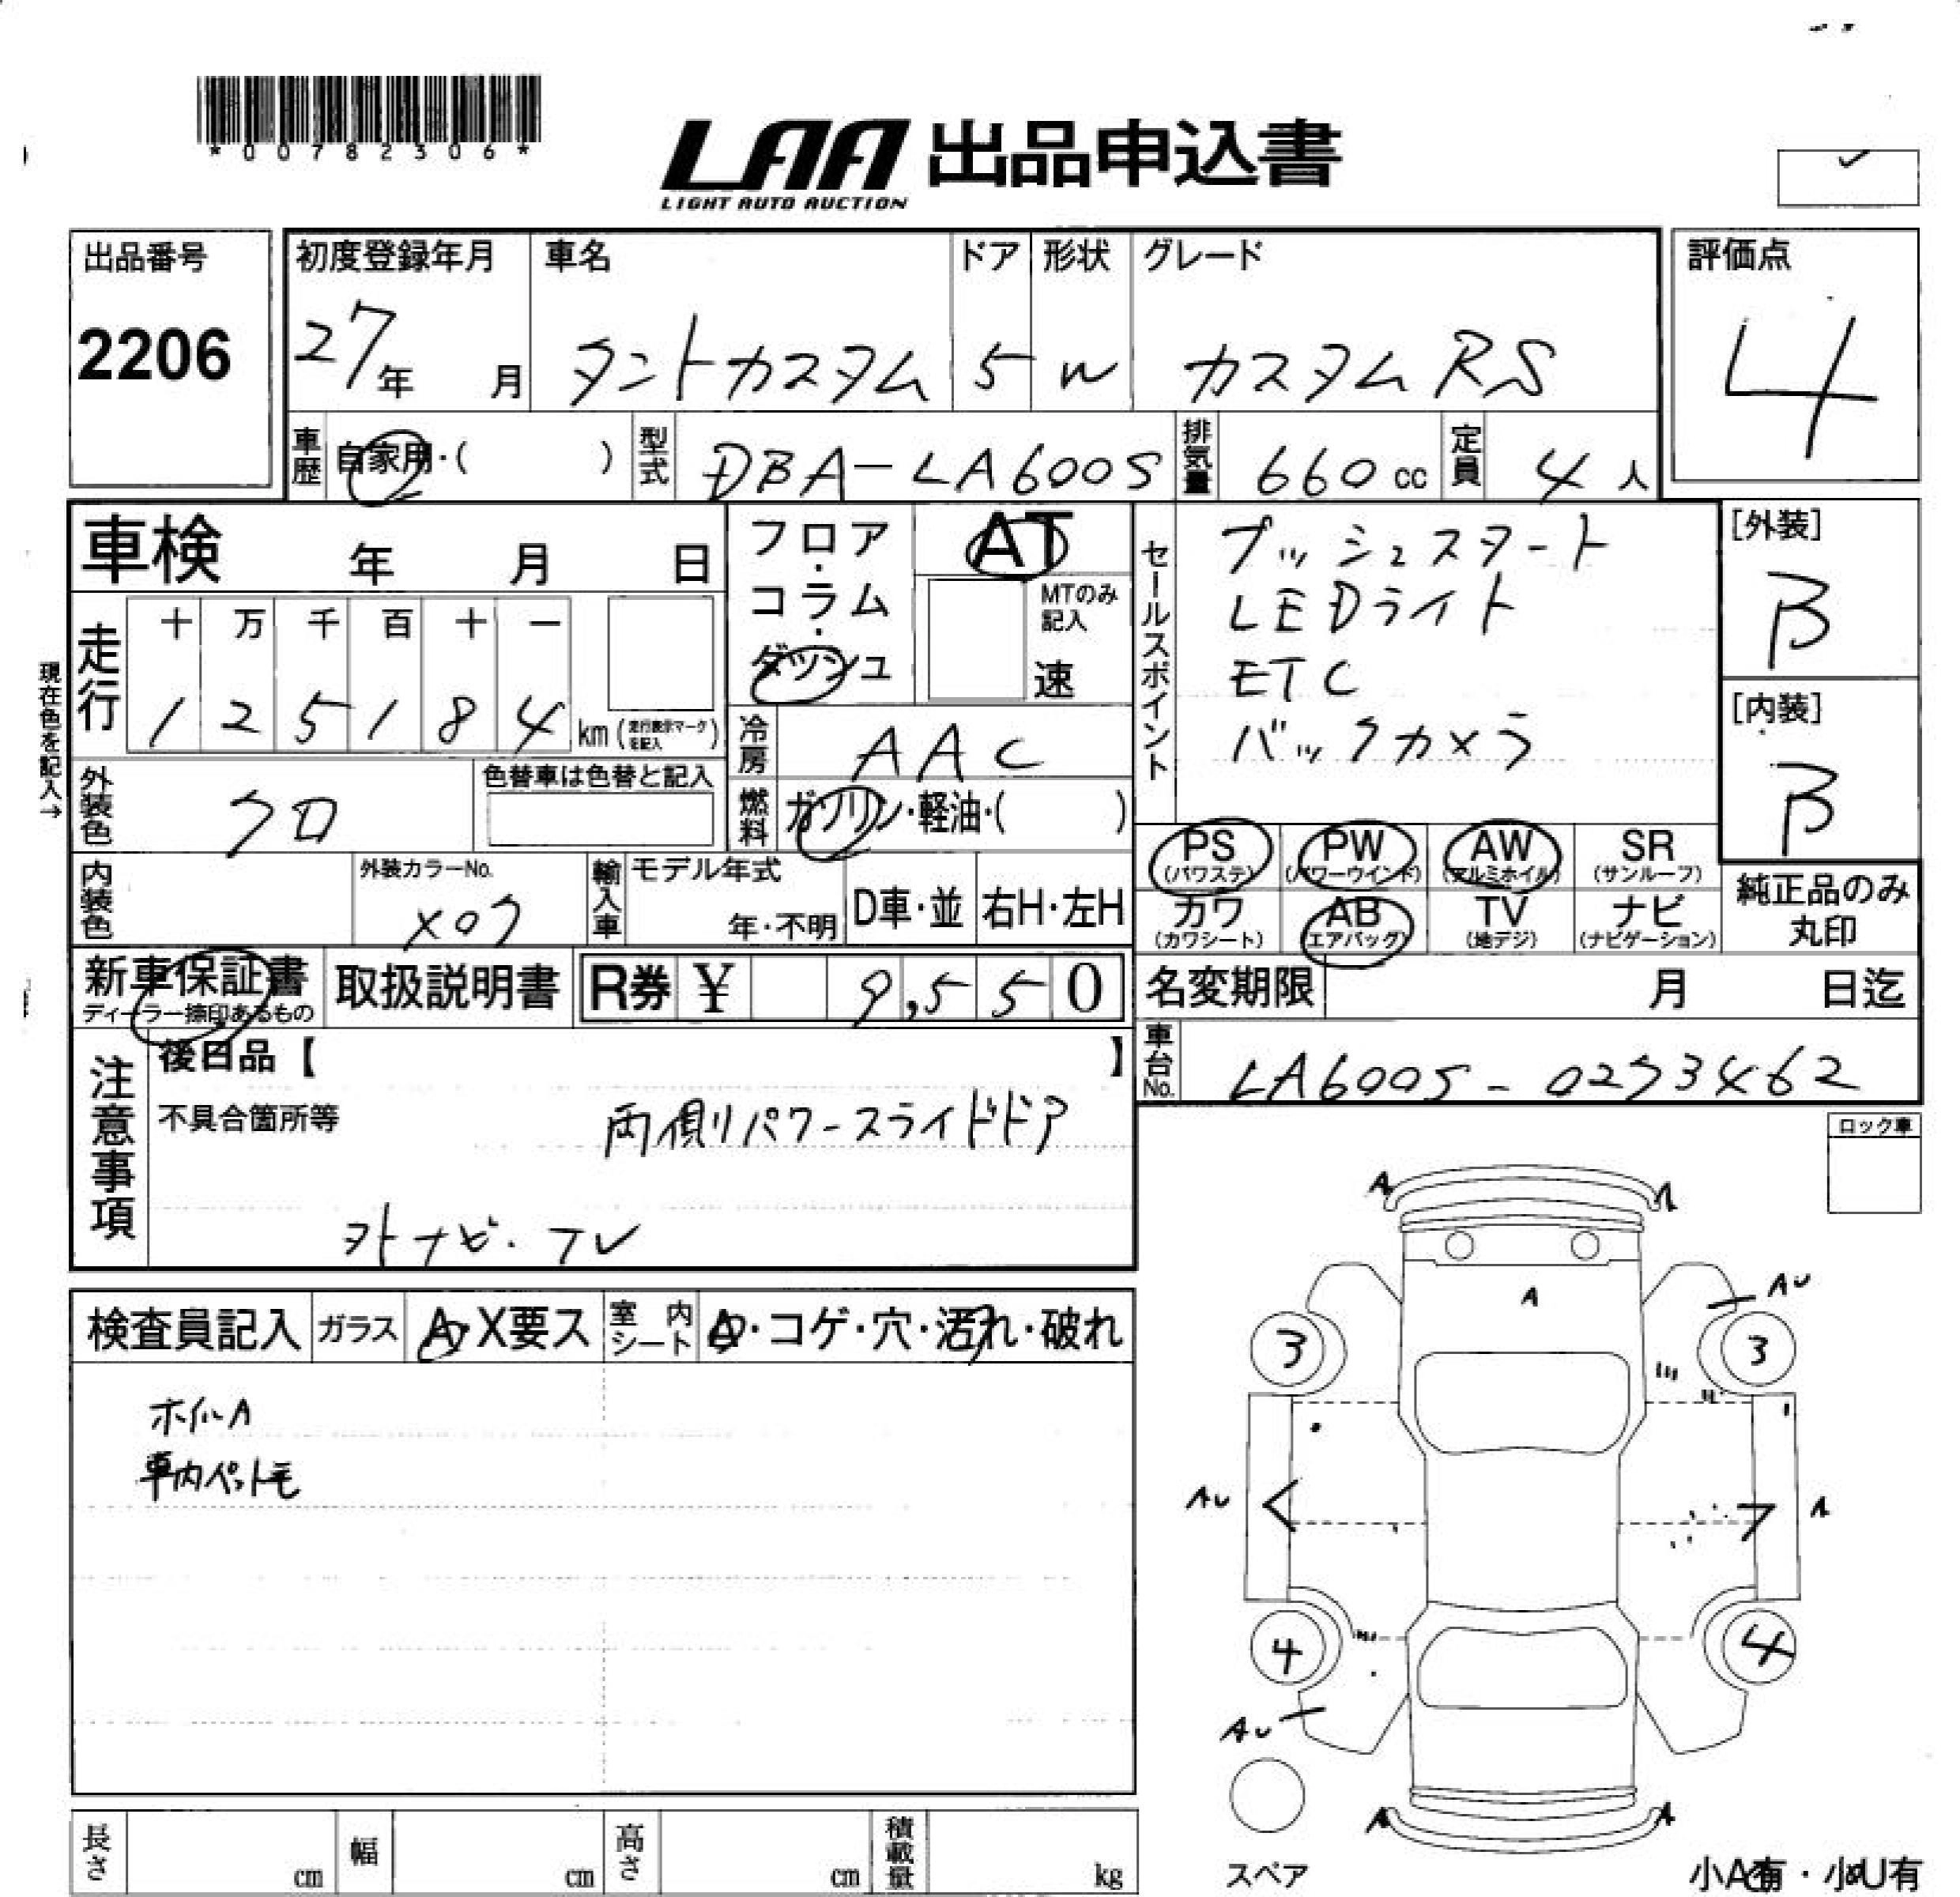 *00782306*
LAA 出品申込書
LIGHT AUTO AUCTION
出品番号
2206
初度登録年月
27年 月
車名
タントカスタム
ドア
5
形状
W
グレード
カスタムRS
評価点
4
車歴 自家用・( )
型式 DBA-LA600S
排気量 660cc
定員 4人
車検 年 月 日
現在色を記入→
走行
十 万 千 百 十 一
1 2 5 1 8 4 km(走行表示マークを記入)
フロア・コラム・ダッシュ
AT
MTのみ記入
速
冷房 AAC
燃料 ガソリン・軽油・( )
外装色 クロ
色替車は色替と記入
内装色
外装カラーNo.
X07
輸入車
モデル年式
年・不明
D車・並
右H・左H
セールスポイント
プッシュスタート
LEDライト
ETC
バックカメラ
[外装]
B
[内装]
B
PS (パワステ)
PW (パワーウインド)
AW (アルミホイル)
SR (サンルーフ)
カワ (カワシート)
AB (エアバッグ)
TV (地デジ)
ナビ (ナビゲーション)
純正品のみ
丸印
新車保証書
ディーラー捺印あるもの
取扱説明書
R券 ¥ 9,550
名変期限 月 日迄
車台No. LA600S-0273462
注意事項
後日品【 】
不具合箇所等
両側パワースライドドア
ヲトナビ・TV
ロック車
検査員記入
ガラス A・X要ス
室内シート A・コゲ・穴・汚れ・破れ
ホイルA
車内ペット毛
A A
A
AU
3 3
AU A
4 4
AU
A A
スペア
小A有・小U有
長さ cm
幅 cm
高さ cm
積載量 kg